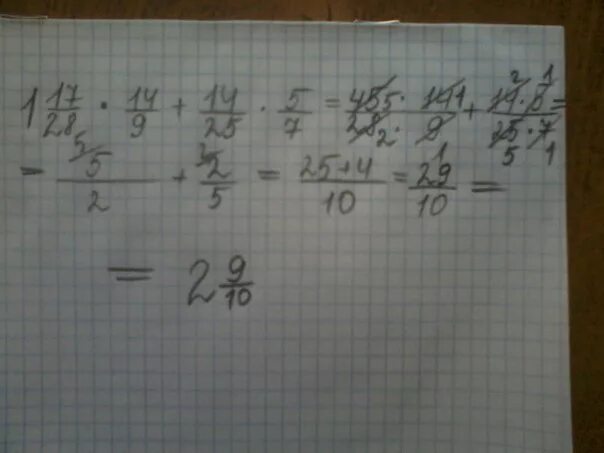 1 17/28 · 14/9 + 14/25 · 5/7 = 45 5 · 14 1 / 28 2 · 9 + 14 2 · 5 1 / 25 5 · 7 1 =
= 5 5/2 + 2 2/5 = 25+4/10 = 29 1/10 =
= 2 9/10